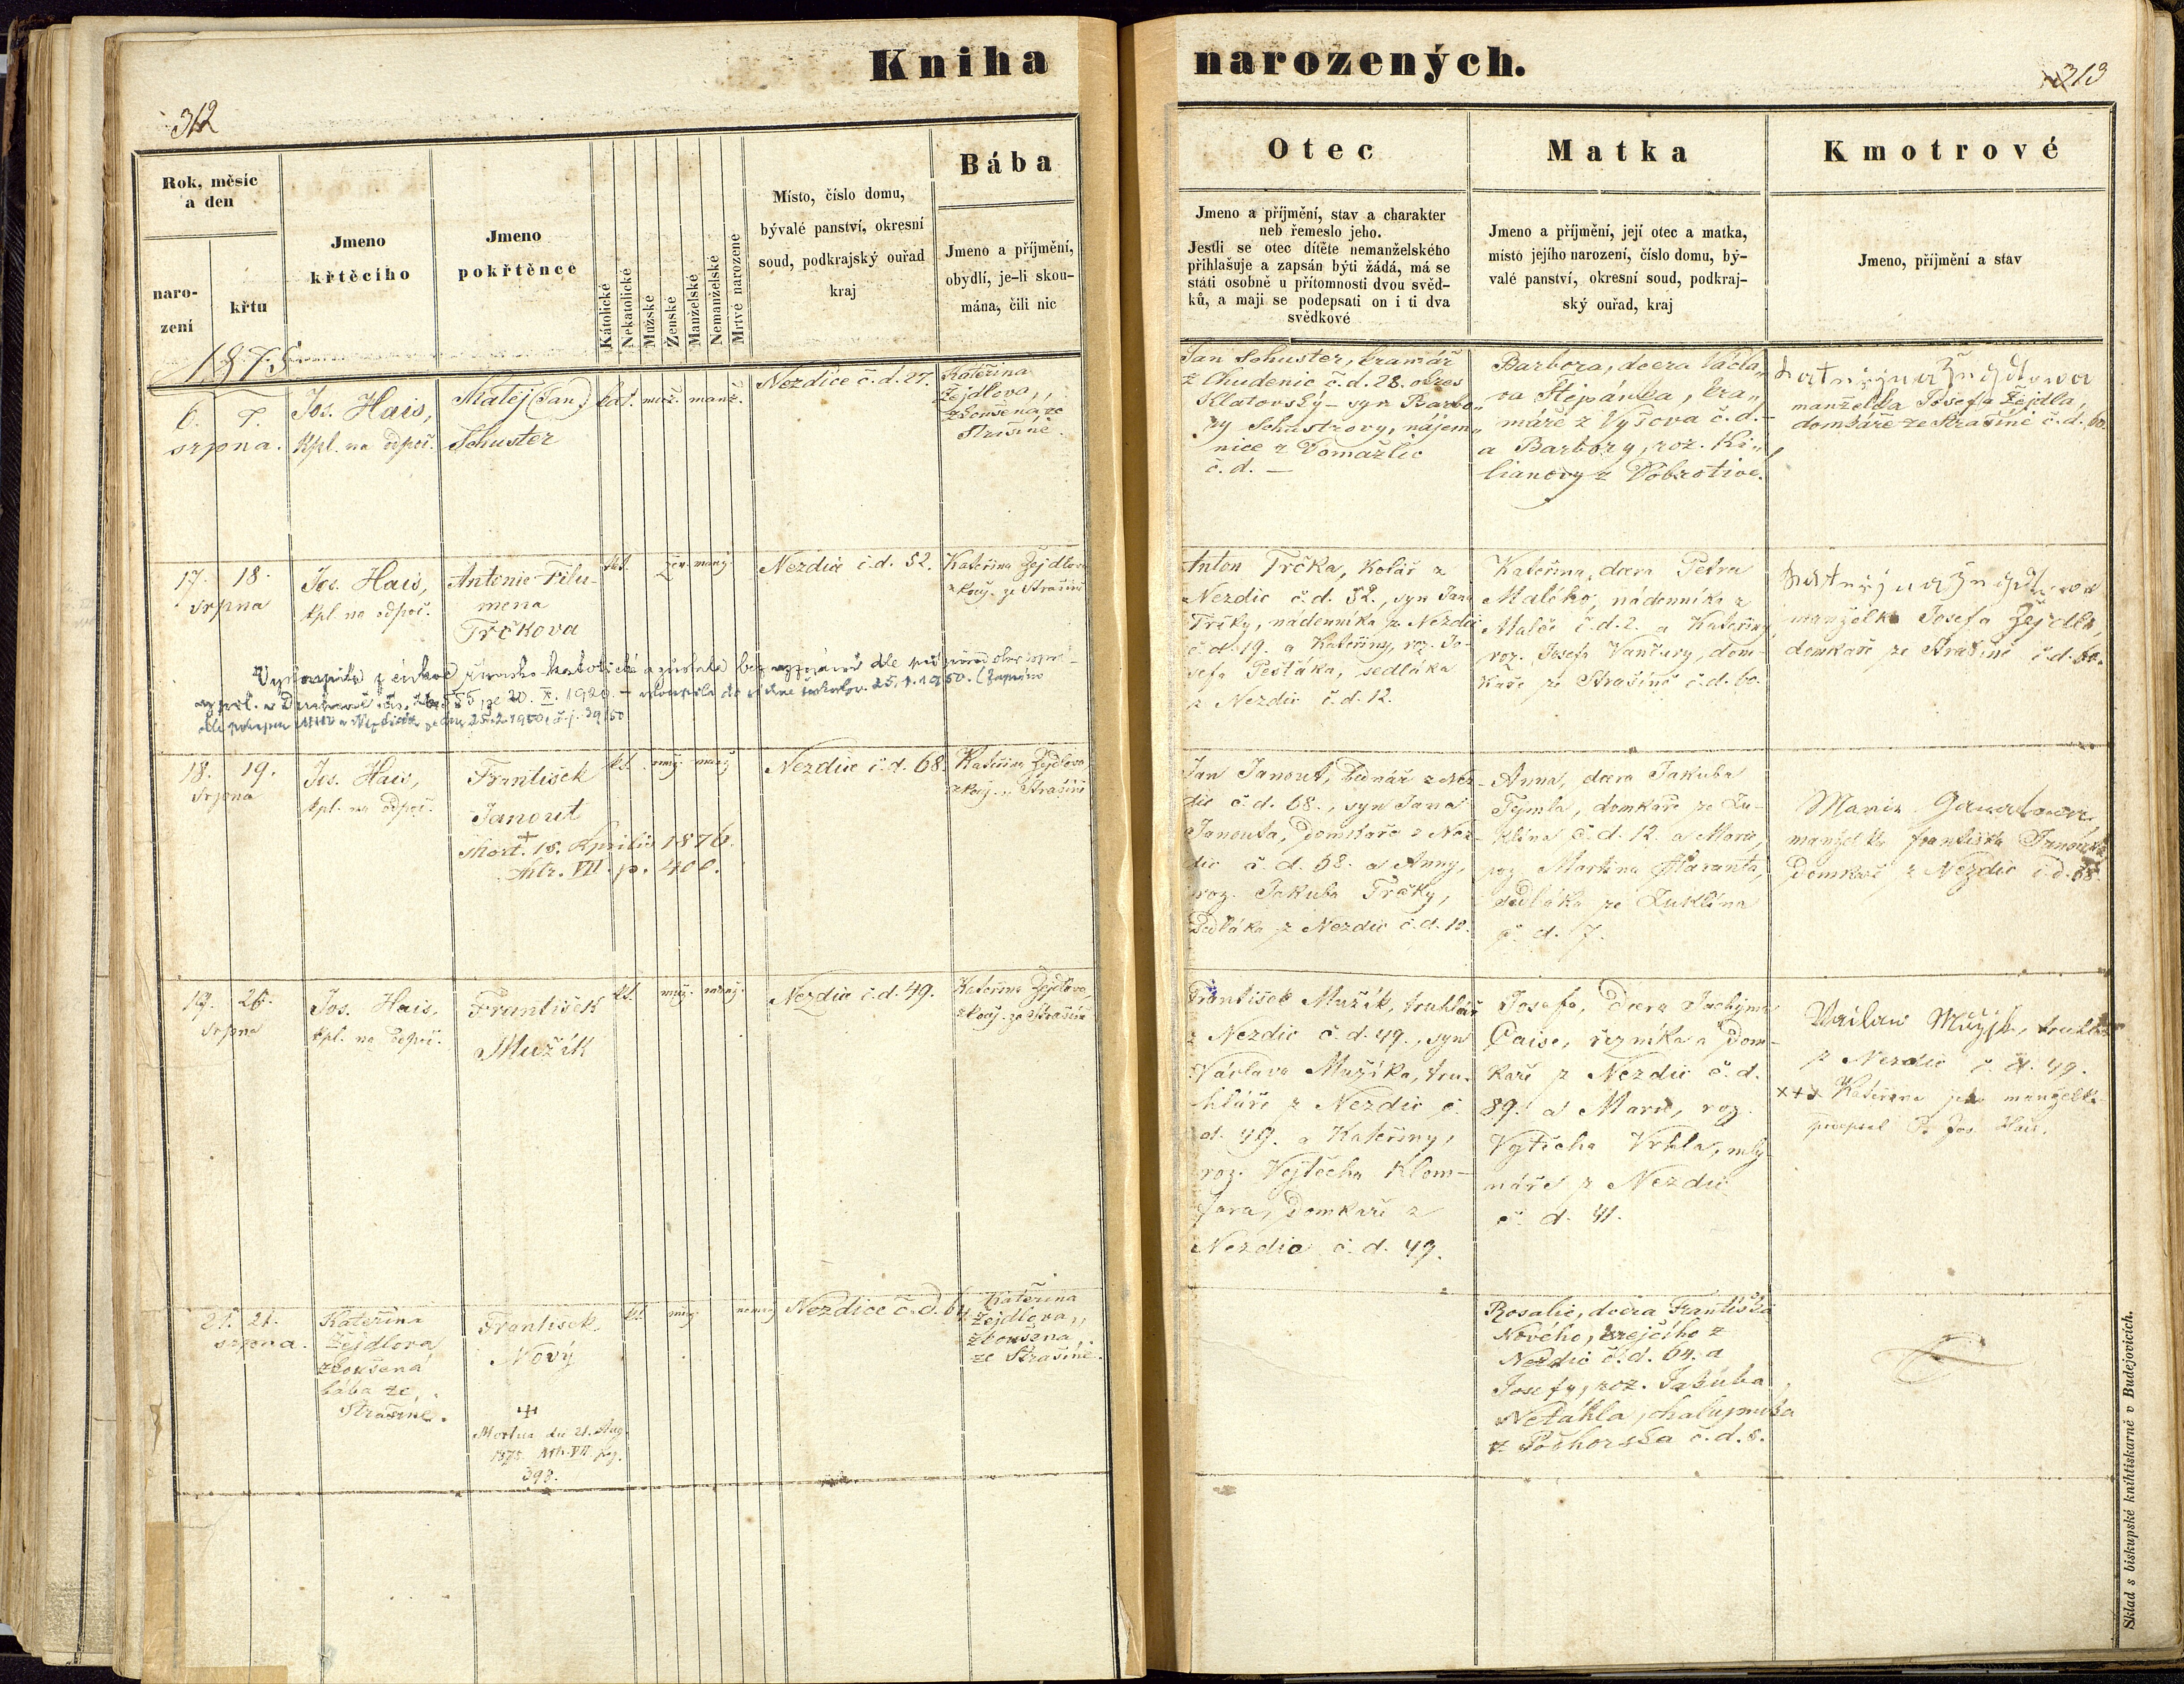 Kniha
narozených.
312
313
Rok, měsíc
a den
naro-
zení
křtu
Jmeno
křtěcího
Jmeno
pokřtěnce
Kátolické
Nekatolické
Mužské
Ženské
Manželské
Nemanželské
Mrtvé narozené
Místo, číslo domu,
bývalé panství, okresní
soud, podkrajský ouřad
kraj
Bába
Jmeno a příjmění,
obydlí, je-li skou-
mána, čili nic
Otec
Jmeno a příjmění, stav a charakter
neb řemeslo jeho.
Jestli se otec dítěte nemanželského
přihlašuje a zapsán býti žádá, má se
státi osobně u přítomnosti dvou svěd-
ků, a mají se podepsati on i ti dva
svědkové
Matka
Jmeno a příjmění, její otec a matka,
místo jejího narození, číslo domu, bý-
valé panství, okresní soud, podkraj-
ský ouřad, kraj
Kmotrové
Jmeno, příjmění a stav
1875
6. 7.
srpna.
Jos. Hais,
Kpl. na odpoč.
Matěj (Jan)
Schuster
kat. muž. manž.
Nezdice č.d. 27.
Kateřina
Žejdlova,,
zkoušená ze
Strašíně.
Jan Schuster, kramář
z Chudenic č.d. 28. okres
Klatovský – syn Barbo„
ry Schustrovy, nájem„
nice z Domažlic
č.d. –
Barbora, dcera Václa„
va Štěpánka, kra„
máře z Vyšova č.d. –
a Barbory, roz. Ki„
lianovy z Dobrotive.
manželka Josefa Žejdla,
domkáře ze Strašíně č.d. 60.
17. 18.
srpna
Jos. Hais,
kpl. na odpoč.
Antonie Filu-
mena
Trčkova
kat. žen. manž.
Nezdic č.d. 52.
Kateřina Žejdlova
zkouš. ze Strašíně
Anton Trčka, kolář z
Nezdic č.d. 52., syn Jana
Trčky, nádenníka z Nezdic
č.d. 19. a Kateřiny, roz. Jo-
sefa Pešťáka, sedláka
z Nezdic č.d. 12.
Kateřina, dcera Petra
Malého, nádenníka z
Malče č.d. 2. a Kateřiny,
roz. Josefa Vančury, dom-
káře ze Strašíně č.d. 60.
manželka Josefa Žejdla,
domkáře ze Strašíně č.d. 60.
Vystoupila z církve římsko-katolické a zůstala bez vyznání dle
20. X. 1920. – 25. 1. 1950. (Zapsáno
25.2.1950, č.j. 39/50
18. 19.
srpna
Jos. Hais,
kpl. na odpoč.
František
Janout
+
Mort. 15. Aprilis 1876.
Mtr. VII. p. 400.
kt. muž. manž
Nezdic č.d. 68.
Kateřina Žejdlova
zkouš. z Strašíně
Jan Janout, bednář z Nez-
dic č.d. 68., syn Jana
Janouta, domkáře z Nez-
dic č.d. 68. a Anny,
roz. Jakuba Trčky,
sedláka z Nezdic č.d. 10.
Anna, dcera Jakuba
Tymla, domkáře ze Žu-
klína č.d. 12 a Marie,
roz. Martina Haranta,
sedláka ze Žuklína
č. d. 7.
Marie
manželka Františka Janouta
domkáře z Nezdic č.d. 68.
19. 20.
srpna
Jos. Hais,
kpl. na odpoč.
František
Mužík
kt. muž. manž.
Nezdic č.d. 49.
Kateřina Žejdlova,
zkouš. ze Strašíně
František Mužík, truhlář
z Nezdic č.d. 49., syn
Václava Mužíka, tru-
hláře z Nezdic č.
d. 49. a Kateřiny,
roz. Vojtěcha Klom-
fara, domkáře z
Nezdic č.d. 49.
Josefa, dcera Jachyma
Caise, řezníka a dom-
káře z Nezdic č.d.
89. a Marie, roz.
Vojtěcha Vrhla, mly-
náře z Nezdic
č. d. 41.
Vaclaw Mužjk, truhlář
z Nezdic č. d. 49.
xxx Kateřina jeho manželka
podepsal P. Jos. Hais.
21. 21.
srpna.
Kateřina
Žejdlova
zkoušená
bába ze
Strašíně.
František
Nový
+
Mortuus die 21. Aug.
1875 Mtr. VII. pag.
393.
kt. muž. nemanž
Nezdice č.d. 64
Kateřina
Žejdlova,,
zkoušena,
ze Strašíně.
Rosalie, dcera Františka
Nového, krejčího z
Nezdic č.d. 64. a
Josefy, roz. Jakuba
Netáhla, chalupníka
z Pochorska č.d. 8.
Sklad s biskupské knihtiskarně v Budějovicích.